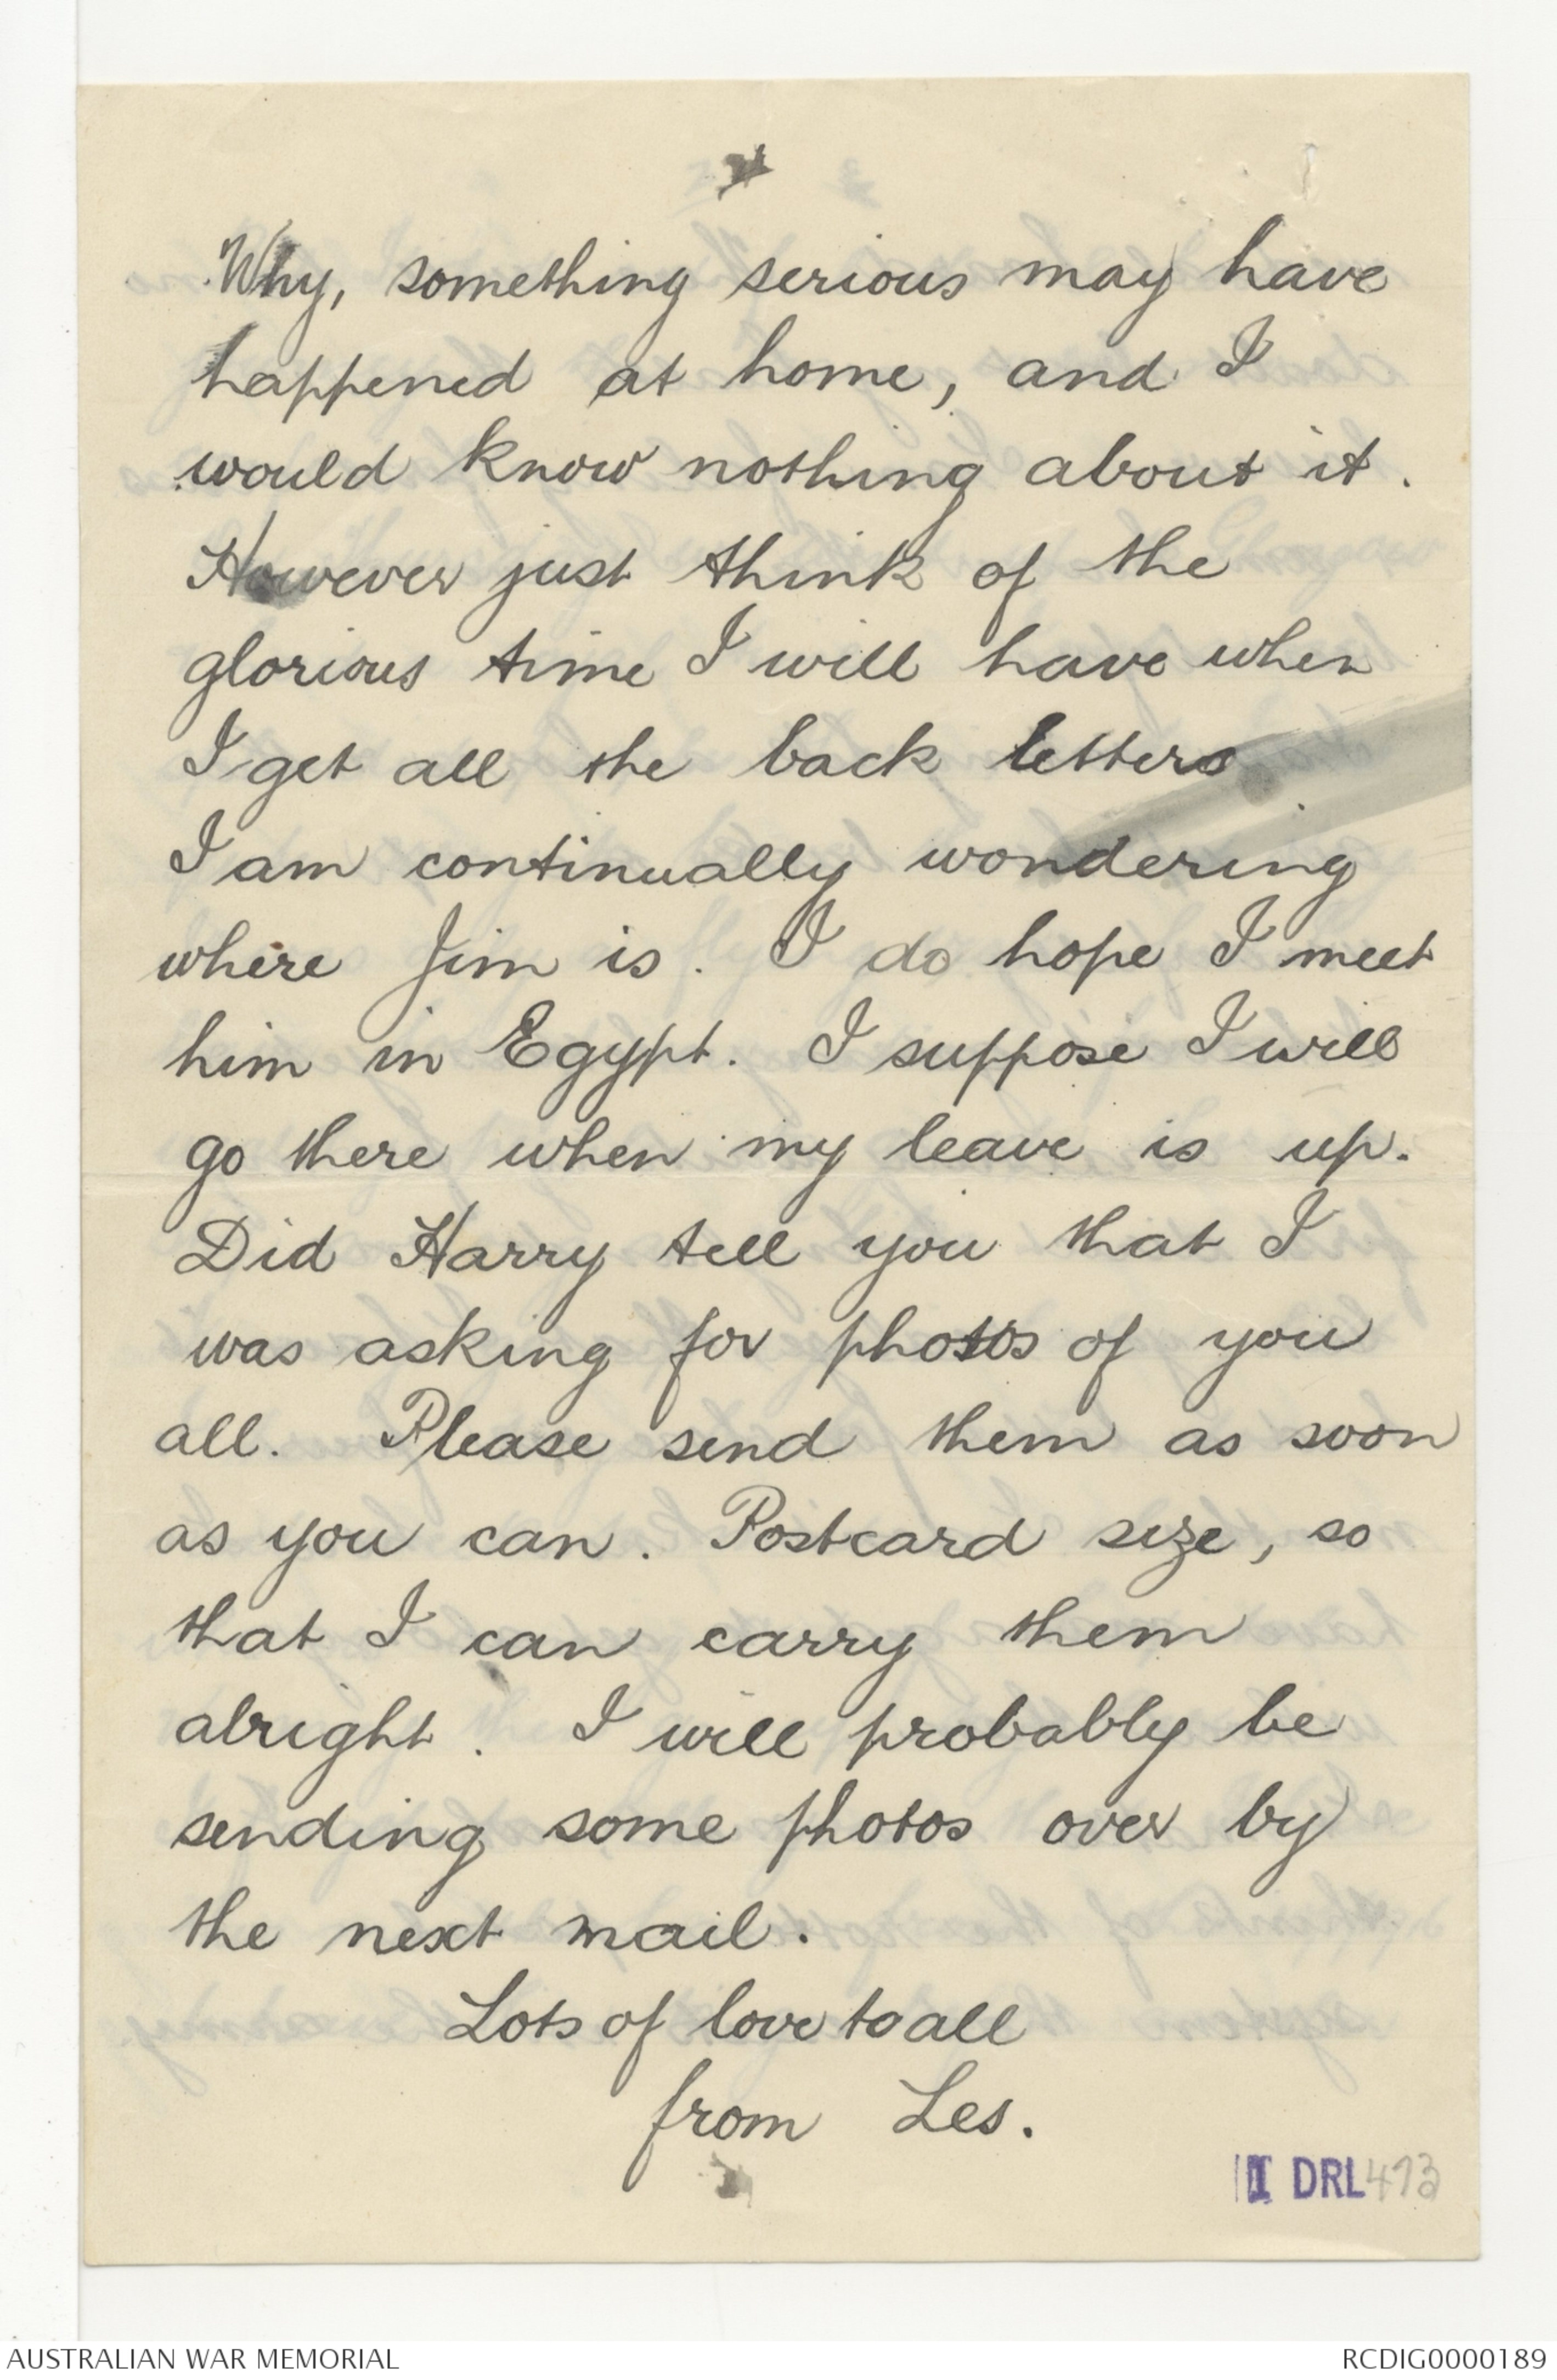 Why, something serious may have
happened at home, and I
would know nothing about it.
However just think of the
glorious time I will have when
I get all the back letters
I am continually wondering
where Jim is. I do hope I meet
him in Egypt. I suppose I will
go there when my leave is up.
Did Harry tell you that I
was asking for photos of you
all. Please send them as soon
as you can. Postcard size, so
that I can carry them
alright. I will probably be
sending some photos over by
the next mail.
Lots of love to all
from Les.
1 DRL 473
AUSTRALIAN WAR MEMORIAL
RCDIG0000189